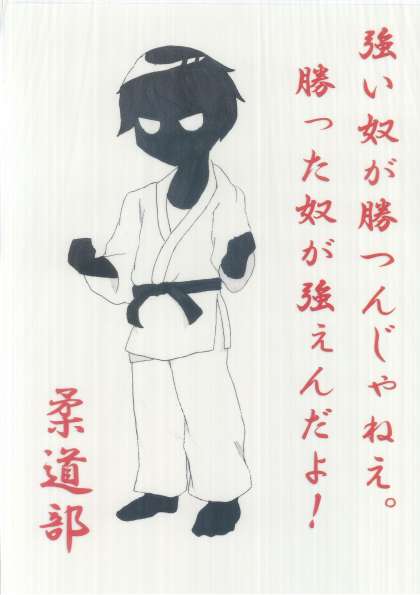 強い奴が勝つんじゃねえ。
勝った奴が強ぇんだよ！
柔道部